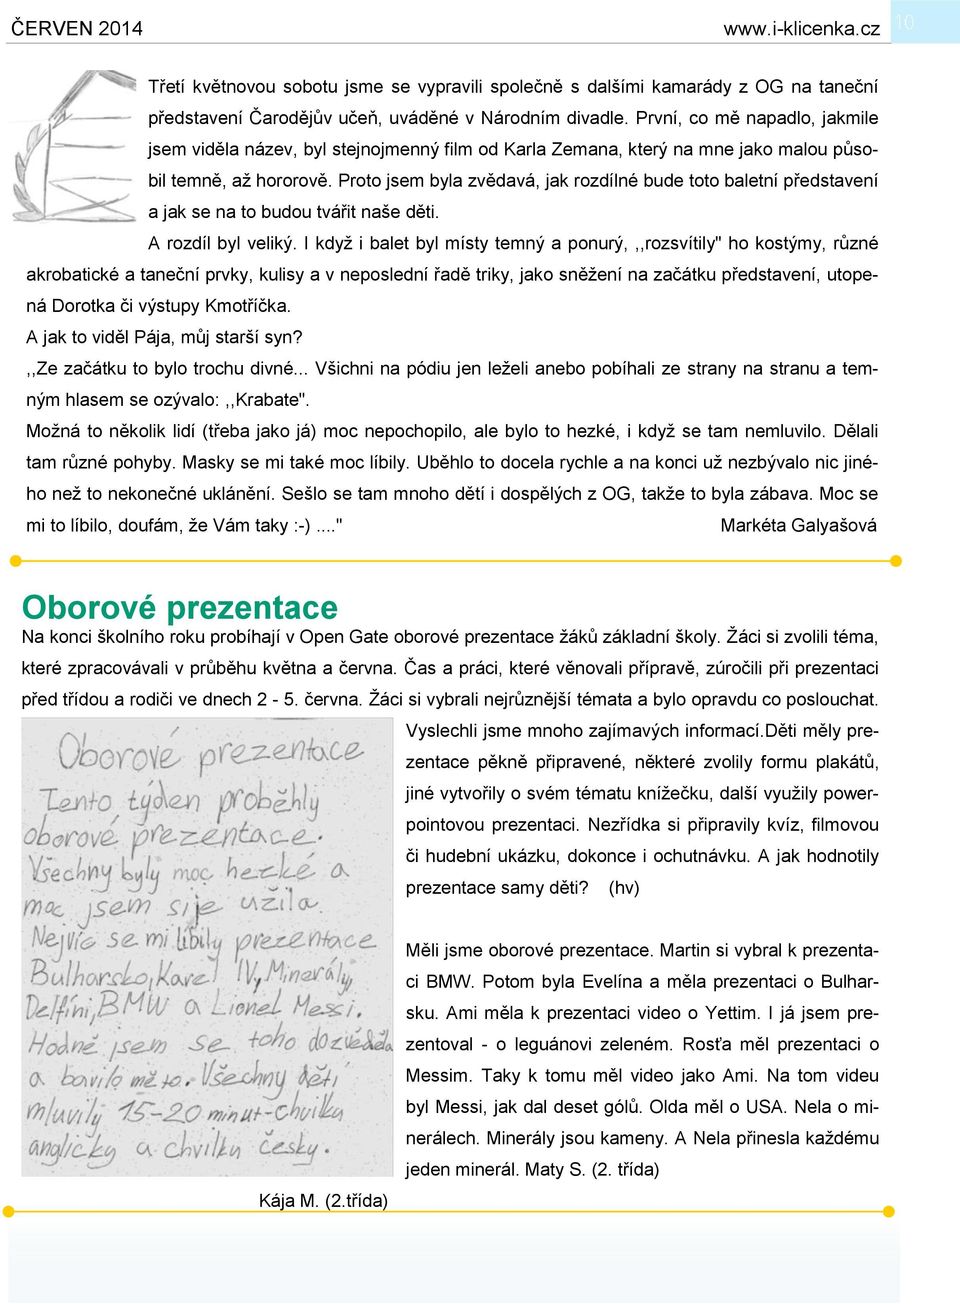 ČERVEN 2014
www.i-klicenka.cz
10
Třetí květnovou sobotu jsme se vypravili společně s dalšími kamarády z OG na taneční
představení Čarodějův učeň, uváděné v Národním divadle. První, co mě napadlo, jakmile
jsem viděla název, byl stejnojmenný film od Karla Zemana, který na mne jako malou půso-
bil temně, až hororově. Proto jsem byla zvědavá, jak rozdílné bude toto baletní představení
a jak se na to budou tvářit naše děti.
A rozdíl byl veliký. I když i balet byl místy temný a ponurý, ,,rozsvítily" ho kostýmy, různé
akrobatické a taneční prvky, kulisy a v neposlední řadě triky, jako sněžení na začátku představení, utope-
ná Dorotka či výstupy Kmotříčka.
A jak to viděl Pája, můj starší syn?
,,Ze začátku to bylo trochu divné... Všichni na pódiu jen leželi anebo pobíhali ze strany na stranu a tem-
ným hlasem se ozývalo: ,,Krabate".
Možná to několik lidí (třeba jako já) moc nepochopilo, ale bylo to hezké, i když se tam nemluvilo. Dělali
tam různé pohyby. Masky se mi také moc líbily. Uběhlo to docela rychle a na konci už nezbývalo nic jiné-
ho než to nekonečné uklánění. Sešlo se tam mnoho dětí i dospělých z OG, takže to byla zábava. Moc se
mi to líbilo, doufám, že Vám taky :-) ...."
Markéta Galyašová
Oborové prezentace
Na konci školního roku probíhají v Open Gate oborové prezentace žáků základní školy. Žáci si zvolili téma,
které zpracovávali v průběhu května a června. Čas a práci, které věnovali přípravě, zúročili při prezentaci
před třídou a rodiči ve dnech 2 - 5. června. Žáci si vybrali nejrůznější témata a bylo opravdu co poslouchat.
Vyslechli jsme mnoho zajímavých informací.Děti měly pre-
zentace pěkně připravené, některé zvolily formu plakátů,
jiné vytvořily o svém tématu knížečku, další využily power-
pointovou prezentaci. Nezřídka si připravily kvíz, filmovou
či hudební ukázku, dokonce i ochutnávku. A jak hodnotily
prezentace samy děti? (hv)
Oborové prezentace
Tento týden proběhly
oborové prezentace.
Všechny byly moc hezké a
moc jsem si je užila.
Nejvíc se mi líbily prezentace
Bulharsko, Karel IV, Minerály,
Delfíni, BMW a Lionel Messi.
Hodně jsem se toho dozvěděla
a bavilo mě to. Všechny děti
mluvily 15-20 minut-chvilka
anglicky a chvilku česky.
Kája M. (2.třída)
Měli jsme oborové prezentace. Martin si vybral k prezenta-
ci BMW. Potom byla Evelína a měla prezentaci o Bulhar-
sku. Ami měla k prezentaci video o Yettim. I já jsem pre-
zentoval - o leguánovi zeleném. Rosťa měl prezentaci o
Messim. Taky k tomu měl video jako Ami. Na tom videu
byl Messi, jak dal deset gólů. Olda měl o USA. Nela o mi-
nerálech. Minerály jsou kameny. A Nela přinesla každému
jeden minerál. Maty S. (2. třída)